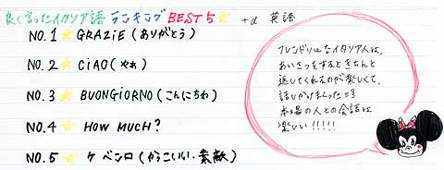 良く言ったイタリア語ランキング BEST5☆ +α 英語
NO.1 ☆ GRAZiE (ありがとう)
NO.2 ☆ CiAO (やぁ)
NO.3 ☆ BUONGiORNO (こんにちわ)
NO.4 ☆ HOW MUCH?
NO.5 ☆ ケ ベンロ (かっこいい・素敵)
フレンドリーなイタリア人は、
あいさつをするときちんと
返してくれるのが楽しくて、
話しかけまくった
の人との会話は
楽しい!!!!!